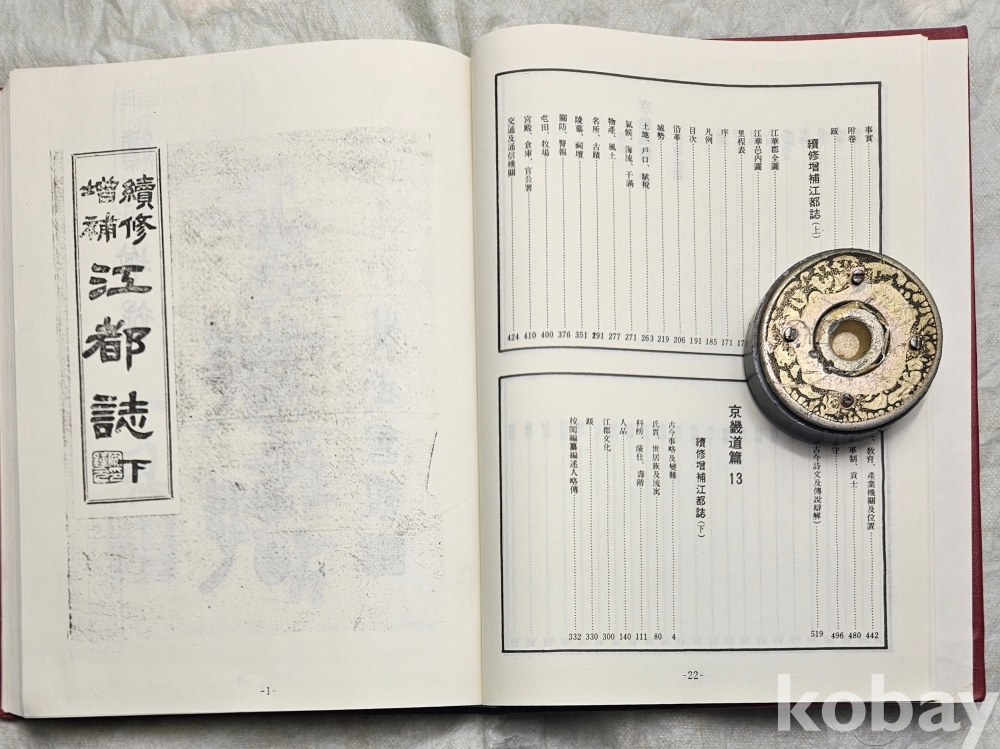 續修
增補
江都誌下
-1-
事實
附卷
跋
續修增補江都誌(上)
江華郡全圖
江華邑內圖
里程表
序 171
凡例 185
目次 191
沿革 206
城勢 219
土地、戶口、賦稅 263
氣候、海流、干滿 271
物產、風土 277
名所、古蹟 291
陵墓、祠壇 351
關防、警報 376
屯田、牧場 400
宮殿、倉庫、官公署 410
交通及通信機關 424
教育、產業機關及位置 442
軍制、貢士 480
守 496
古今詩文及傳說辯解) 519
京畿道篇 13
續修增補江都誌(下)
古今事略及變難 4
氏貫、世居族及流寓 80
科榜、蔭仕、壽階 111
人品 140
江都文化 300
跋 330
校閱編纂編述人略傳 332
-22-
kobay